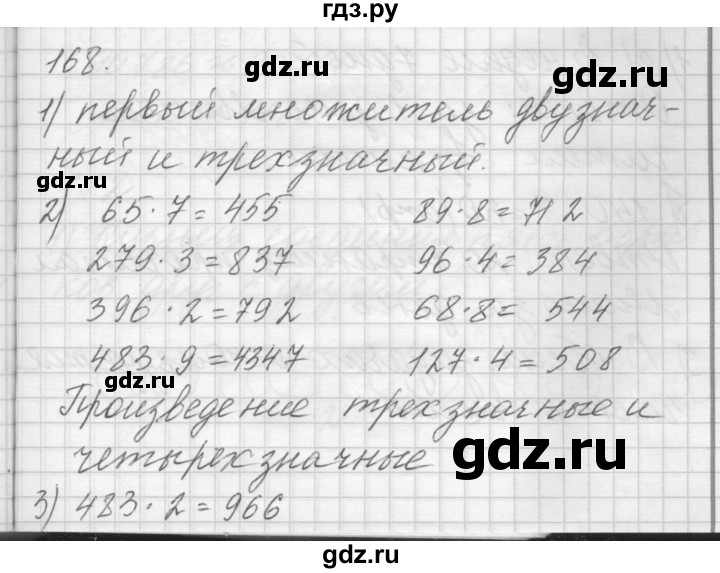 гдз.ру
168.
гдз.ру
1) первый множитель двузнач-
ный и трехзначный.
гдз.ру
2) 65·7=455 89·8=712
279·3=837 96·4=384
396·2=792 68·8= 544
483·9=4347 127·4=508
гдз.ру
Произведение трехзначные и
четырехзначные
гдз.ру
3) 483·2=966
гдз.ру